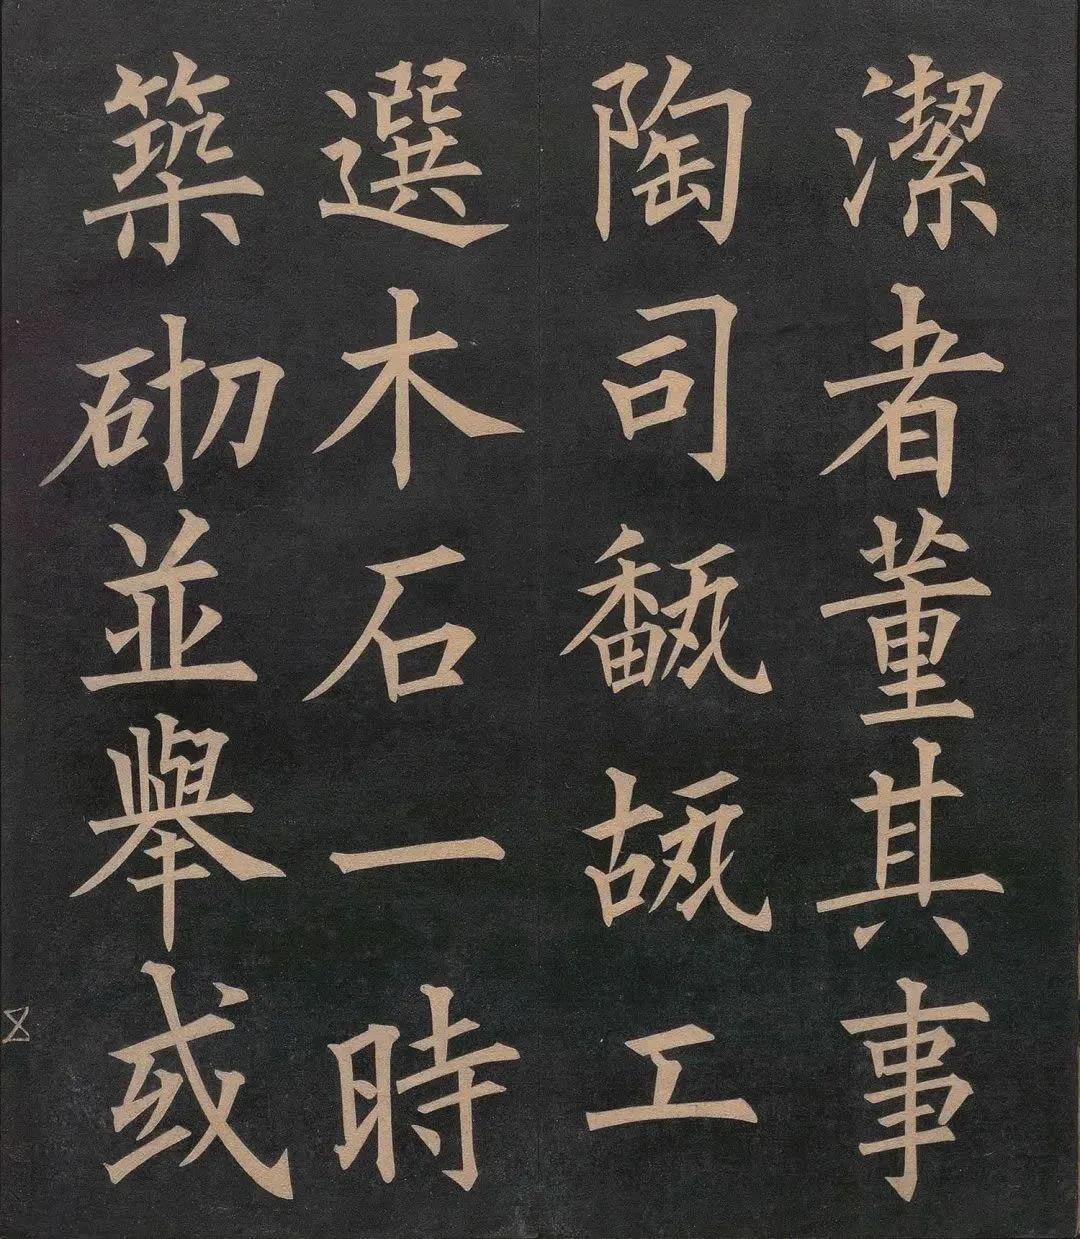 潔者董其事
陶司㽃瓳工
選木石一時
築砌並舉或